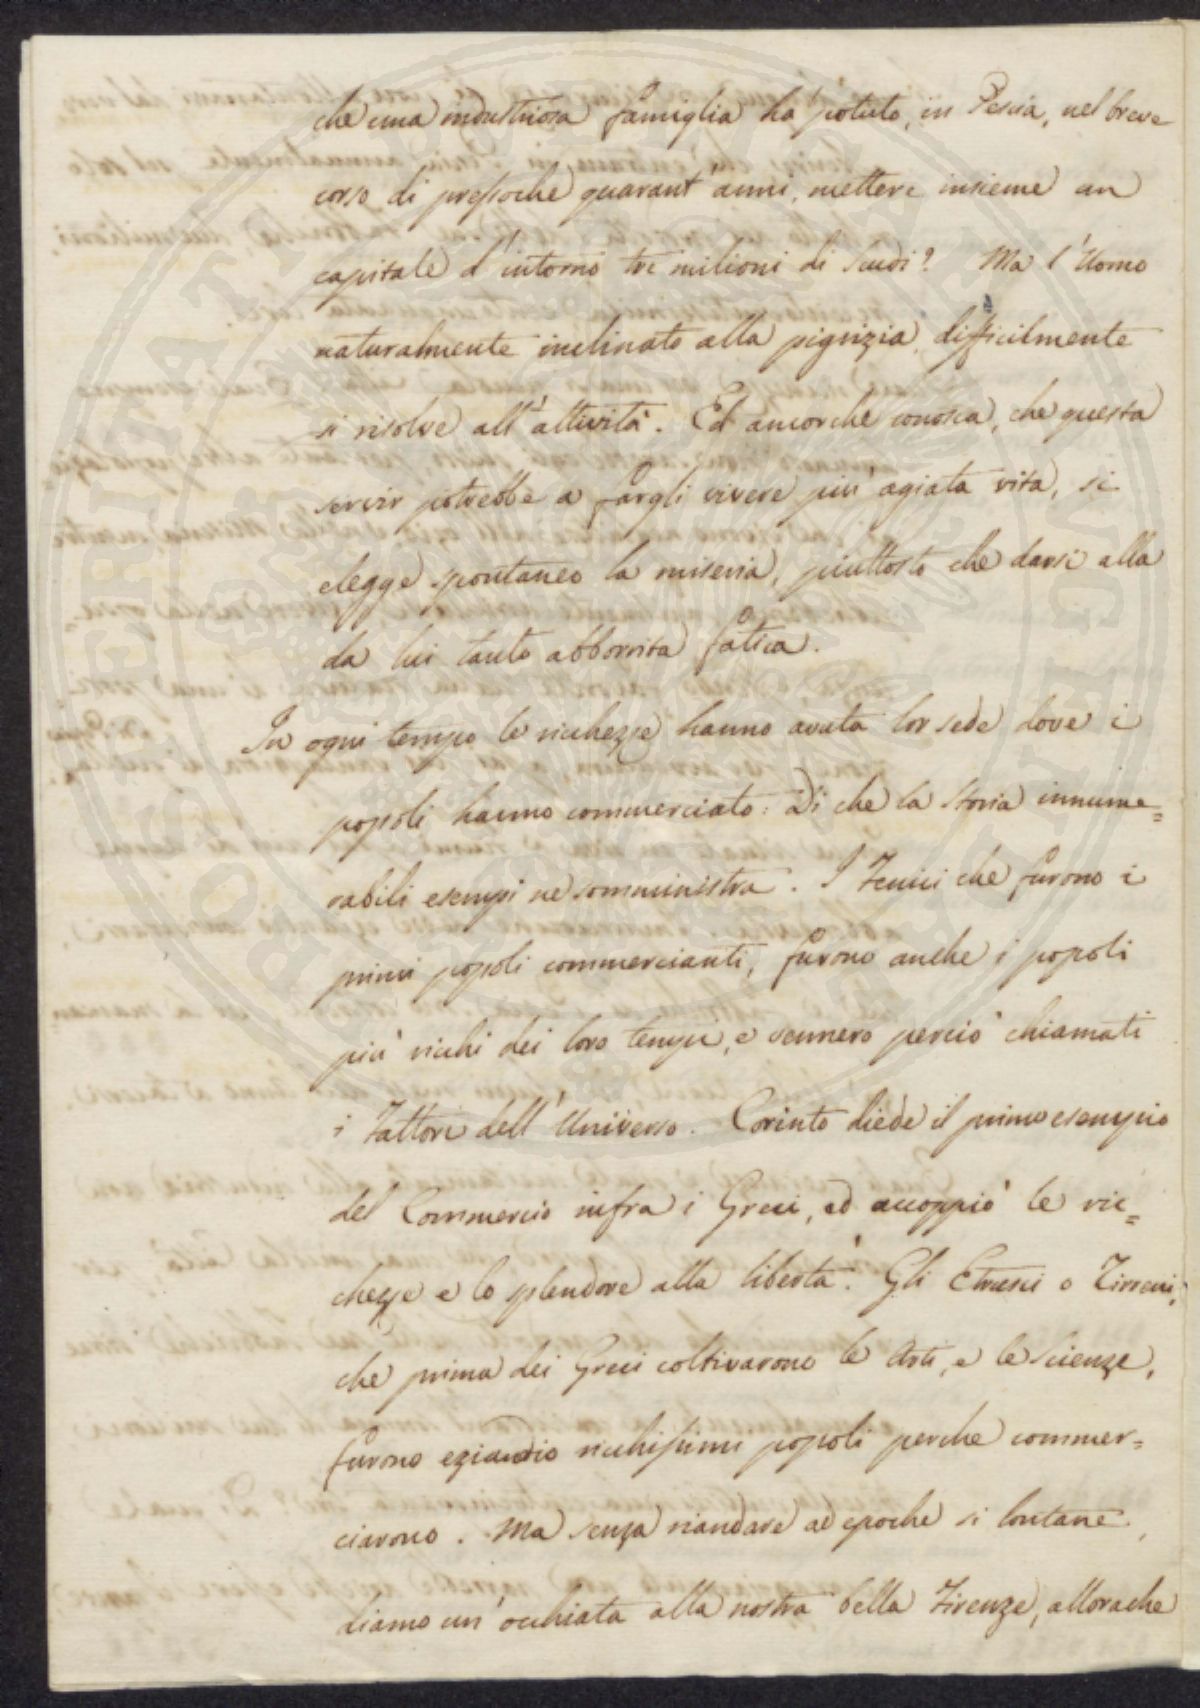 che una industriosa famiglia ha potuto, in Pescia, nel breve
corso di pressochè quarant'anni, mettere insieme un
capitale d'intorno tre milioni di Scudi? Ma l'Uomo
naturalmente inclinato alla pigrizia, difficilmente
si risolve all'attività. Ed ancorche conosca, che questa
servir potrebbe a fargli vivere più agiata vita, si
elegge spontaneo la miseria, piuttosto che darsi alla
da lui tanto abborrita fatica.
In ogni tempo le ricchezze hanno avuta lor sede dove i
popoli hanno commerciato: Di che la Storia innume=
rabili esempi ne somministra. I Fenici che furono i
primi popoli commercianti, furono anche i popoli
più ricchi dei loro tempi, e vennero perciò chiamati
i Fattori dell'Universo. Corinto diede il primo esempio
del Commercio infra i Greci, ed accoppiò le ric=
chezze e lo splendore alla libertà. Gli Etrusci o Tirreni,
che prima dei Greci coltivarono le Arti, e le Scienze,
furono eziandio ricchissimi popoli perche commer=
ciarono. Ma senza riandare ad epoche si lontane,
diamo un'occhiata alla nostra bella Firenze, allorache
PROSPERITATI PUBLICAE AUGENDAE